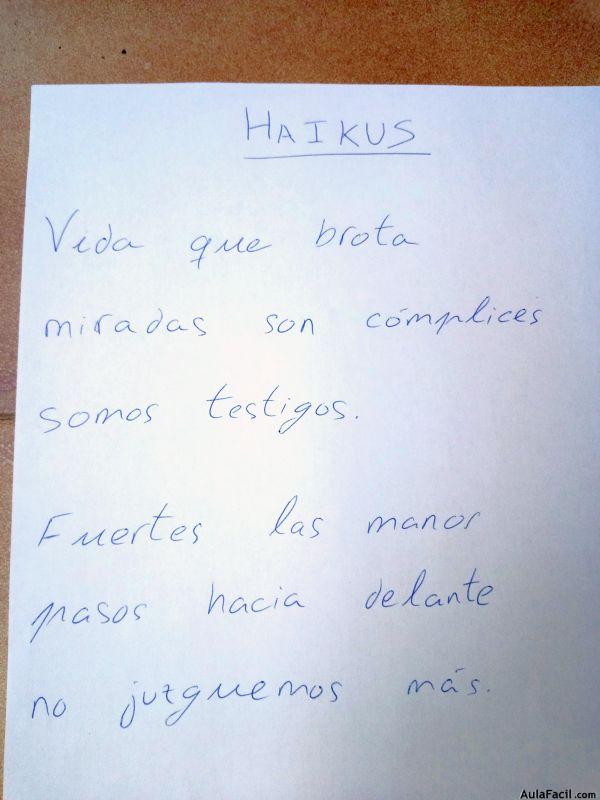 HAIKUS
Vida que brota
miradas son cómplices
somos testigos.
Fuertes las manos
pasos hacia delante
no juzguemos más.
AulaFacil.com